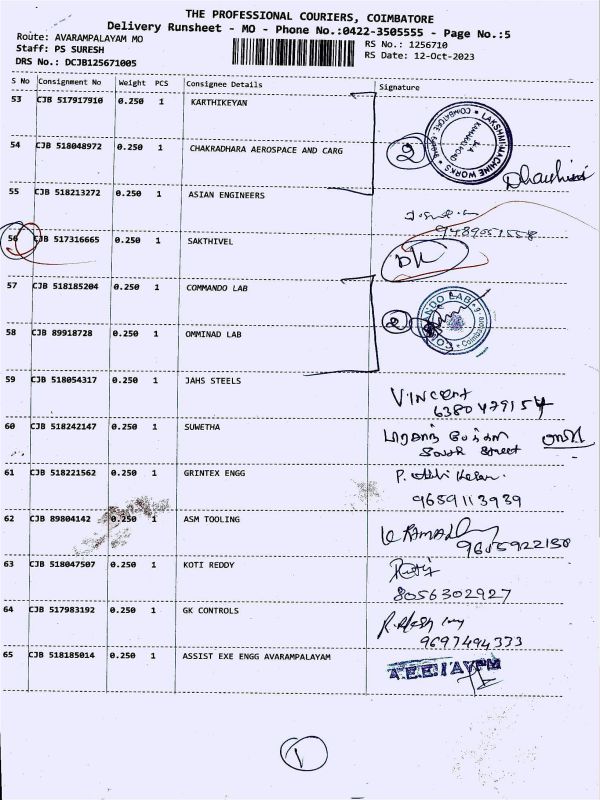 THE PROFESSIONAL COURIERS, COIMBATORE
Delivery Runsheet - MO - Phone No.:0422-3505555 - Page No.:5
Route: AVARAMPALAYAM MO
RS No.: 1256710
Staff: PS SURESH
RS Date: 12-Oct-2023
DRS No.: DCJB125671005
S No Consignment No Weight PCS Consignee Details Signature
53 CJB 517917910 0.250 1 KARTHIKEYAN
LAKSHMI MACHINE WORKS
54 CJB 518048972 0.250 1 CHAKRADHARA AEROSPACE AND CARG 2
55 CJB 518213272 0.250 1 ASIAN ENGINEERS
56 CJB 517316665 0.250 1 SAKTHIVEL
57 CJB 518185204 0.250 1 COMMANDO LAB
58 CJB 89918728 0.250 1 OMMINAD LAB 2
59 CJB 518054317 0.250 1 JAHS STEELS
VINCENT
60 CJB 518242147 0.250 1 SUWETHA
South Street
61 CJB 518221562 0.250 1 GRINTEX ENGG
9659113939
62 CJB 89804142 0.250 1 ASM TOOLING
63 CJB 518047507 0.250 1 KOTI REDDY
8056302927
64 CJB 517983192 0.250 1 GK CONTROLS
9697494333
65 CJB 518185014 0.250 1 ASSIST EXE ENGG AVARAMPALAYAM
1